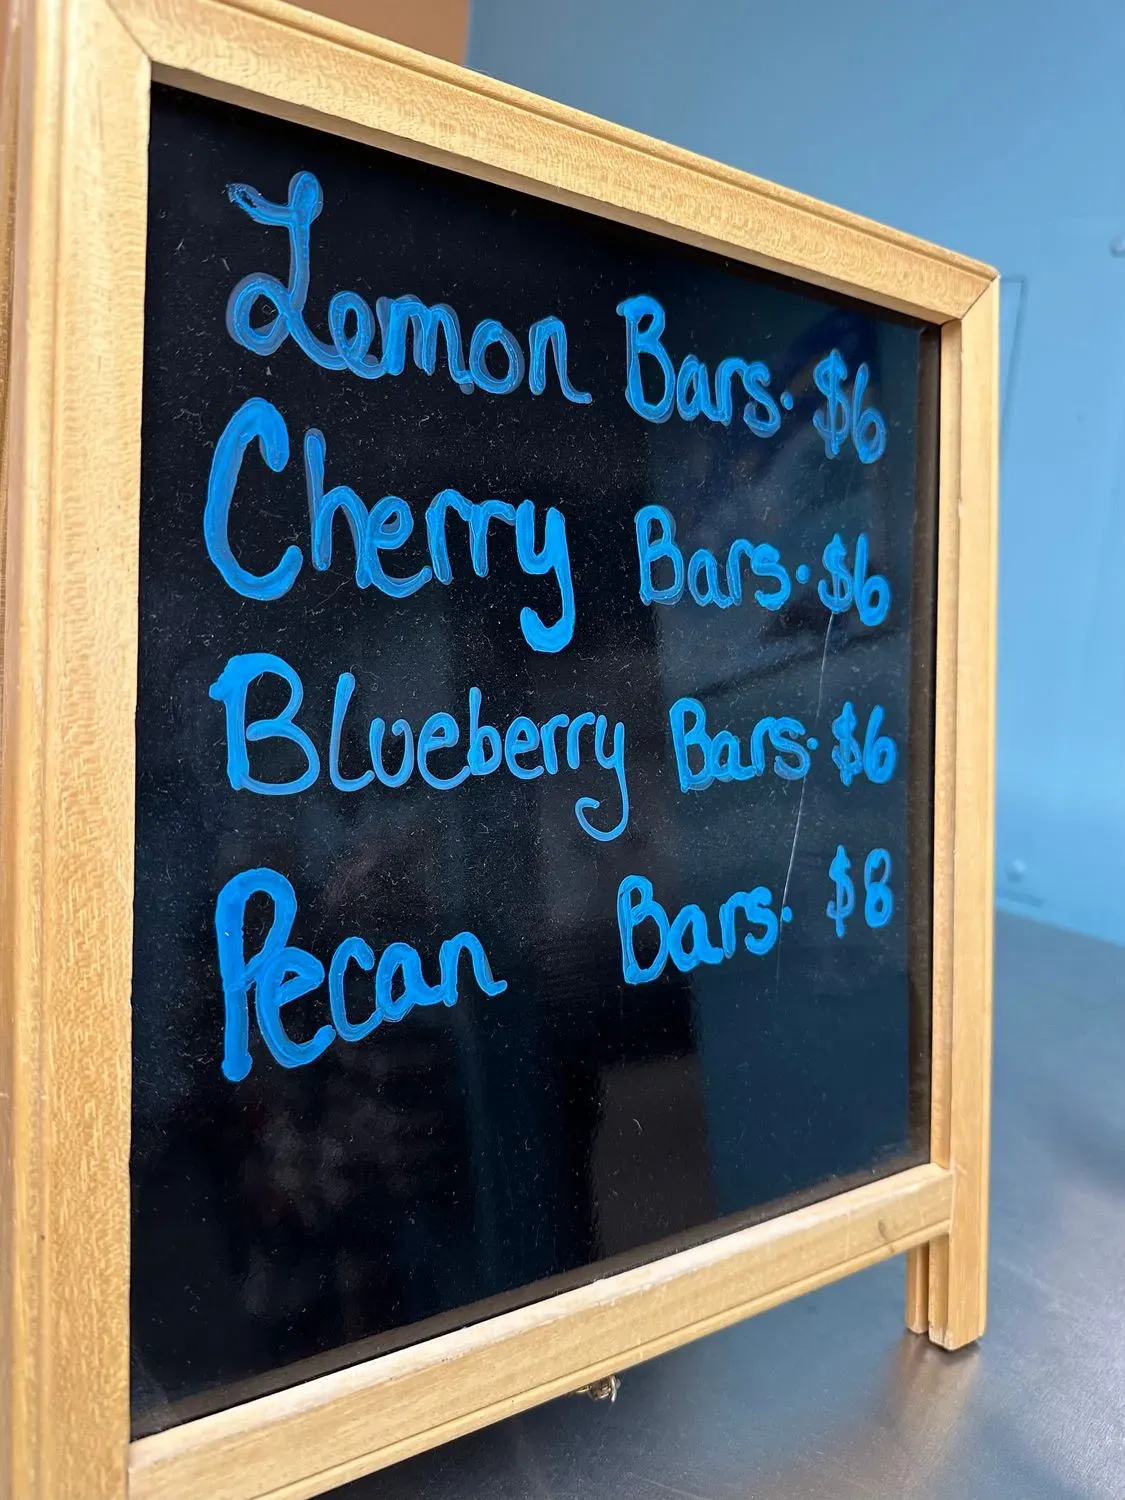 Lemon Bars. $6
Cherry Bars. $6
Blueberry Bars. $6
Pecan Bars. $8